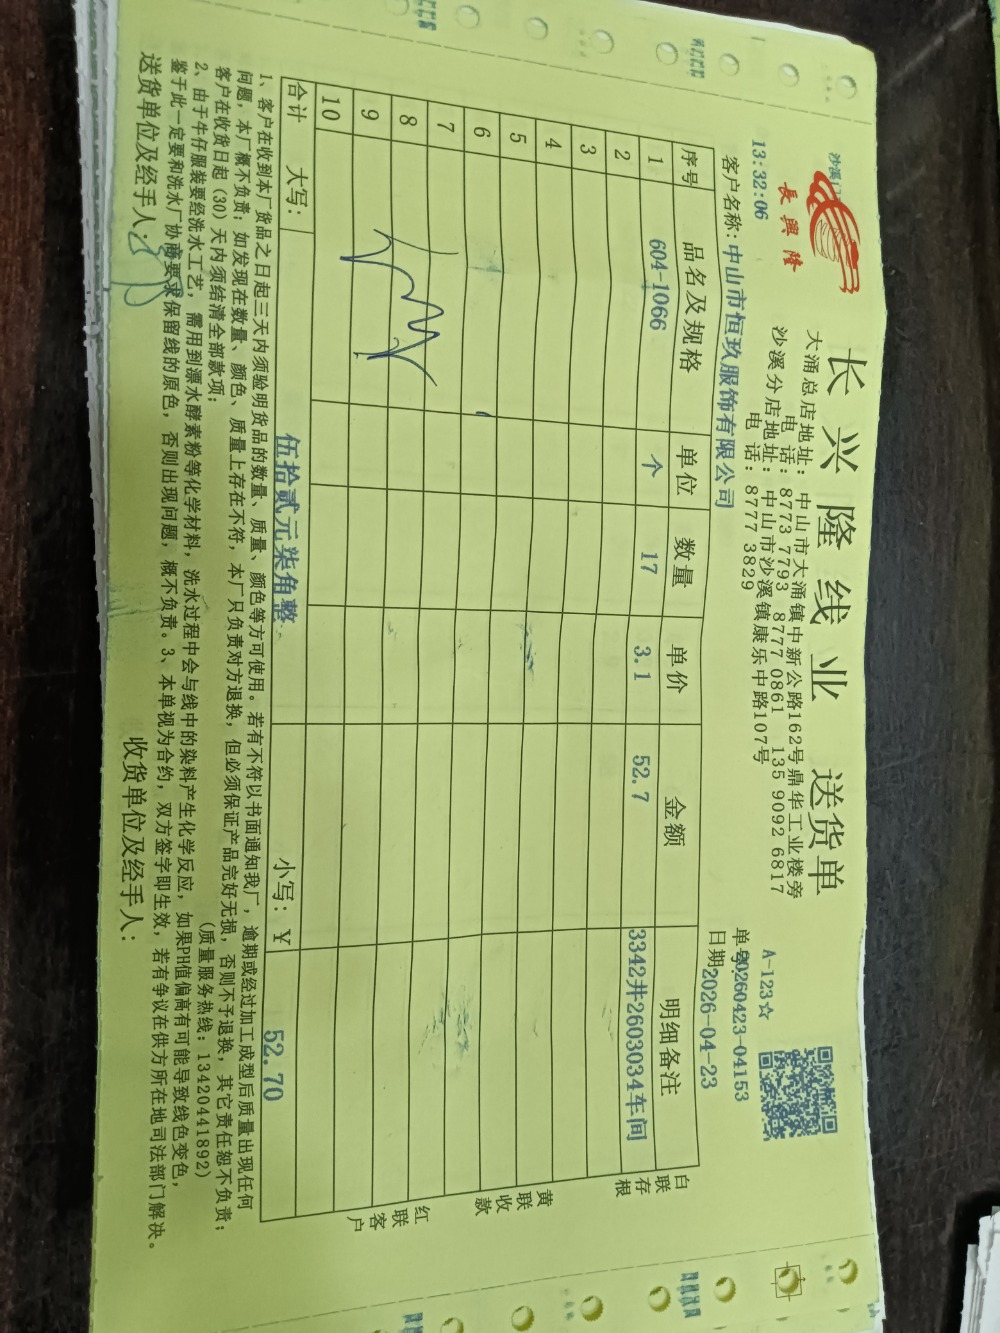 長興隆
长兴隆线业 送货单
大涌总店地址：中山市大涌镇中新公路162号鼎华工业楼旁
电 话：8773 7793 8777 0861 135 9092 6817
沙溪分店地址：中山市沙溪镇康乐中路107号
电 话：8777 3829
A-123☆
13:32:06
单号20260423-04153
客户名称：中山市恒玖服饰有限公司
日期2026-04-23
序号 品名及规格 单位 数量 单价 金额 明细备注
1 604-1066 个 17 3.1 52.7 3342井2603034车间
2
3
4
5
6
7
8
9
10
合计 大写： 伍拾贰元柒角整 小写：￥ 52.70
白联存根
黄联收款
红联客户
1、客户在收到本厂货品之日起三天内须验明货品的数量、质量、颜色等方可使用。若有不符以书面通知我厂，逾期或经过加工成型后质量出现任何
问题，本厂概不负责；如发现在数量、颜色、质量上存在不符，本厂只负责对方退换，但必须保证产品完好无损，否则不予退换，其它责任恕不负责；
客户在收货日起（30）天内须结清全部款项； （质量服务热线：13420441892）
2、由于牛仔服装要经洗水工艺，需用到漂水酵素粉等化学材料，洗水过程中会与线中的染料产生化学反应，如果PH值偏高有可能导致线色变色，
鉴于此一定要和洗水厂协商要求保留线的原色，否则出现问题，概不负责。3、本单视为合约，双方签字即生效，若有争议在供方所在地司法部门解决。
送货单位及经手人： 收货单位及经手人：